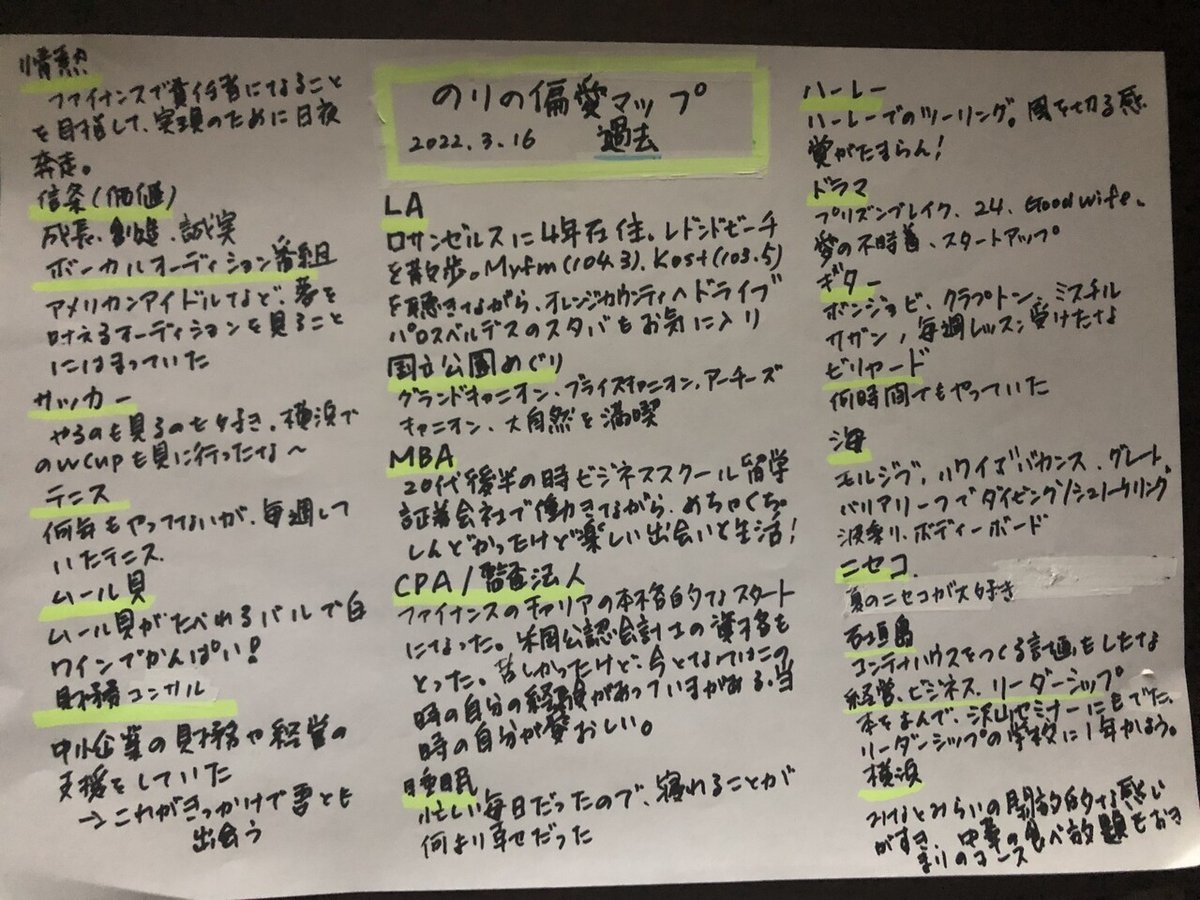 のりの偏愛マップ
2022.3.16 過去
情熱
ファイナンスで責任者になること
を目指して、実現のために日夜
奔走。
信条(価値)
成長、創造、誠実
ボーカルオーディション番組
アメリカンアイドルなど、夢を
叶えるオーディションを見ること
にはまっていた
サッカー
やるのも見るのも好き。横浜で
のWcupも見に行ったな〜
テニス
何年もやってないが、毎週して
いたテニス
ムール貝
ムール貝がたべれるバルで白
ワインでかんぱい!
財務コンサル
中小企業の財務や経営の
支援をしていた
→これがきっかけで
出会う
LA
ロサンゼルスに4年在住。レドンドビーチ
を散歩。Myfm(104.3)、Kost(103.5)
を聴きながら、オレンジカウンティへドライブ
パロスベルデスのスタバもお気に入り
国立公園めぐり
グランドキャニオン、ブライスキャニオン、アーチーズ
キャニオン、大自然を満喫
MBA
20代後半の時ビジネススクール留学
証券会社で働きながら、めちゃくちゃ
しんどかったけど楽しい出会いと生活!
CPA/監査法人
ファイナンスのキャリアの本格的なスタート
になった。米国公認会計士の資格も
とった。苦しかったけど、今となってはこの
時の自分の経験があっていまがある。当
時の自分が愛おしい。
睡眠
忙しい毎日だったので、寝れることが
何より幸せだった
ハーレー
ハーレーでのツーリング。風を切る感
覚がたまらん!
ドラマ
プリズンブレイク、24、Good wife、
愛の不時着、スタートアップ
ギター
ボンジョビ、クラプトン、ミスチル
サザン、毎週レッスン受けたな
ビリヤード
何時間でもやっていた
海
モルジブ、ハワイでバカンス、グレート
バリアリーフでダイビング/シュノーケリング
波乗り、ボディーボード
ニセコ
夏のニセコが大好き
石垣島
コンテナハウスをつくる計画もしたな
経営、ビジネス、リーダーシップ
本をよんで、沢山セミナーにもでた。
リーダーシップの学校に1年かよう。
横浜
みなとみらいの開放的な感じ
がすき、中華の食べ放題もおき
まりのコース